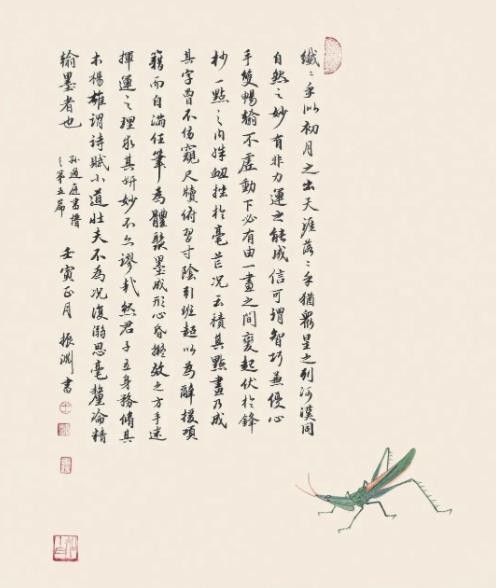 纖〻乎似初月之出天涯落〻乎猶眾星之列河漢同
自然之妙有非力運之能成信可謂智巧兼優心
手雙暢翰不虛動下必有由一畫之間變起伏於鋒
杪一點之內殊衄挫於毫芒況云積其點畫乃成
其字曾不傍窺尺牘俯習寸陰引班超以為辭援項
籍而自滿任筆為體聚墨成形心昏擬效之方手迷
揮運之理求其妍妙不亦謬哉然君子立身務脩其
本楊雄謂詩賦小道壯夫不為況復溺思毫釐淪精
翰墨者也
孫過庭書譜
之第五篇
壬寅正月 振淵書